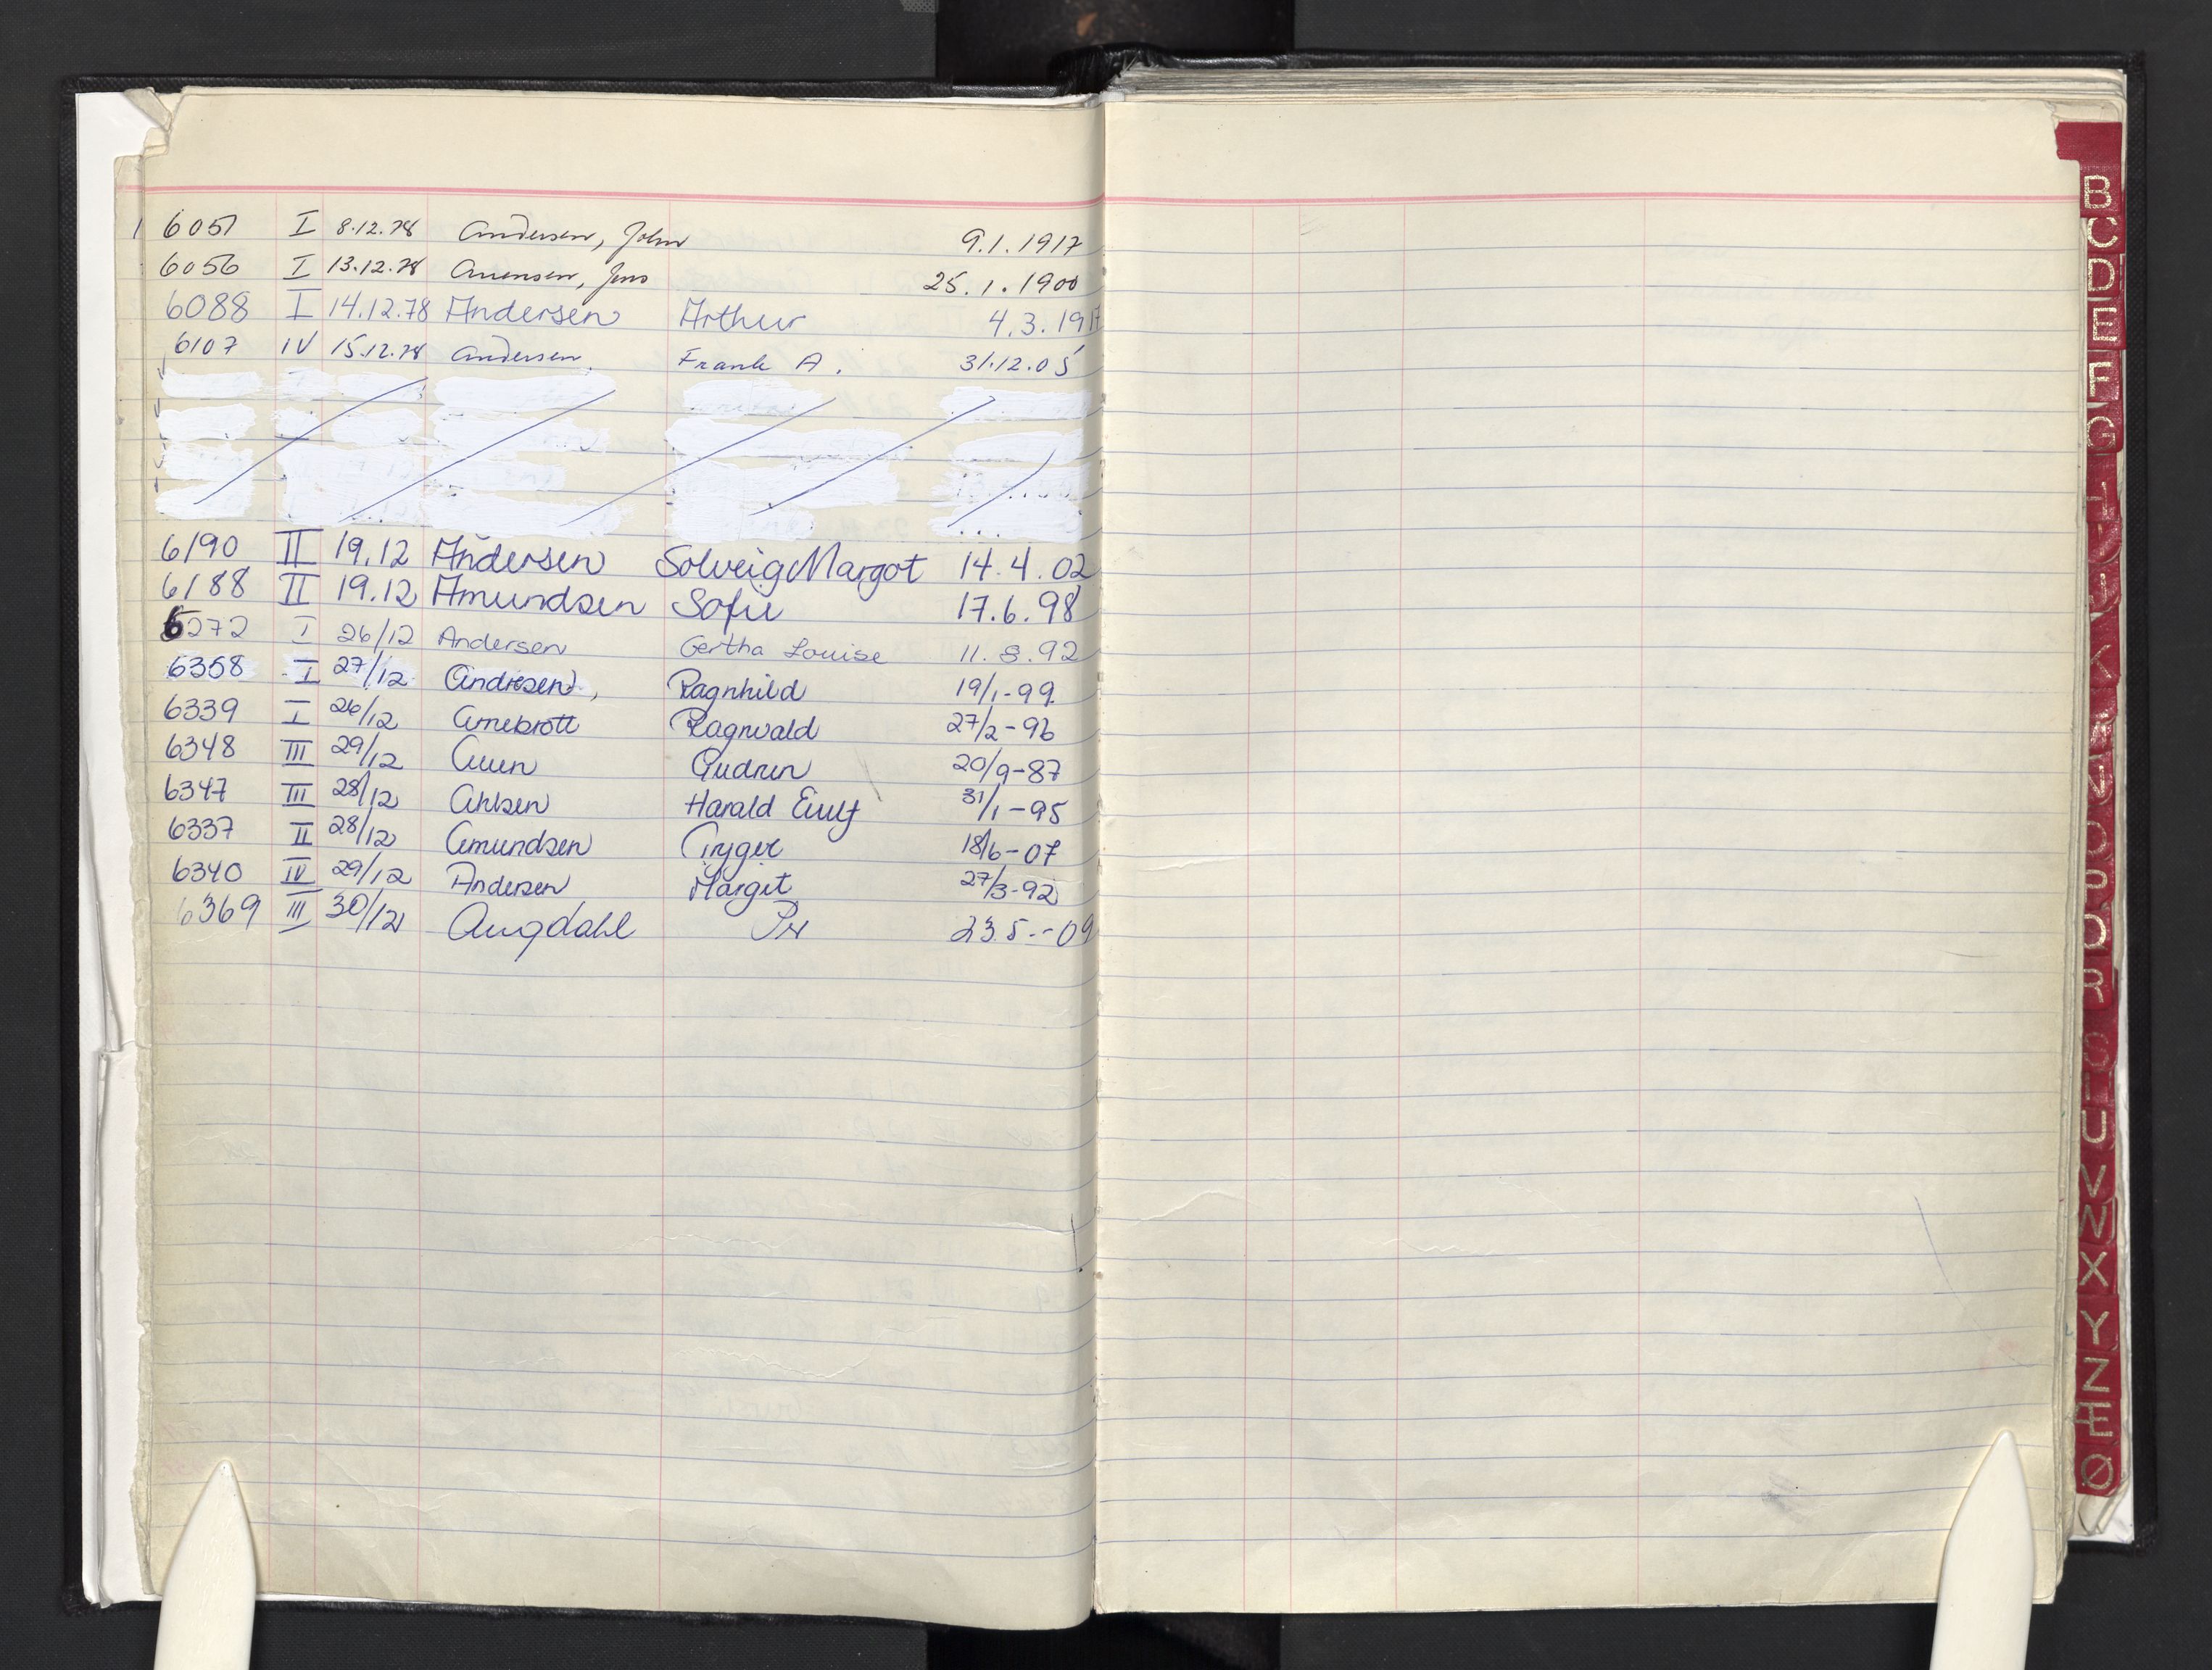 6051 I 8.12.78 Andersen, John 9.1.1917
6056 I 13.12.78 Arnensen, Jens 25.1.1900
6088 I 14.12.78 Andersen Arthur 4.3.1917
6107 IV 15.12.78 Andersen, Frank A. 31.12.05
6190 II 19.12 Andersen Solveig Margot 14.4.02
6188 II 19.12 Amundsen Sofie 17.6.98
6272 I 26/12 Andersen Gertha Louise 11.8.92
6358 I 27/12 Andresen, Ragnhild 19/1-99
6339 I 26/12 Arnebrott Ragnvald 27/2-96
6348 III 29/12 Gudrun 20/9-87
6347 III 28/12 Ahlsen Harald 31/1-95
6337 II 28/12 Amundsen 18/6-07
6340 IV 29/12 Andersen Margit 27/3-92
6369 III 30/12 Augdahl Per 23.5.-09
B
C
D
E
F
G
H
I
J
K
N
O
P
R
S
U
V
W
X
Y
Z
Æ
Ø